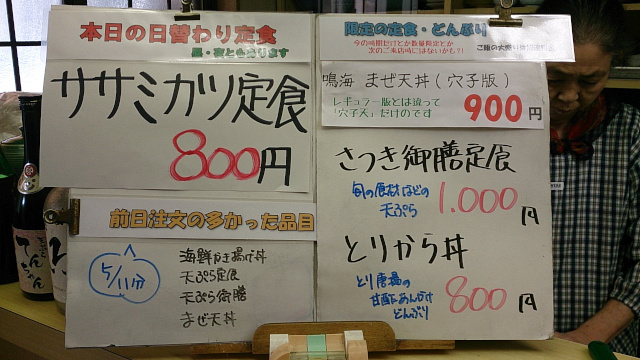 本日の日替わり定食
昼・夜ともあります
ササミカツ定食
800円
前日注文の多かった品目
5/11分
海鮮かき揚げ丼
天ぷら定食
天ぷら御膳
まぜ天丼
限定の定食・どんぶり
今の時期だけとか数量限定とか
次のご来店時にはないかも?!
ご飯の大盛り
鳴海 まぜ天丼(穴子版)
レギュラー版とは違って
「穴子天」だけのです
900円
さつき御膳定食
旬の食材などの
天ぷら
1.000円
とりから丼
とり唐揚の
甘酢あんかけ
どんぶり
800円
てんちゃん